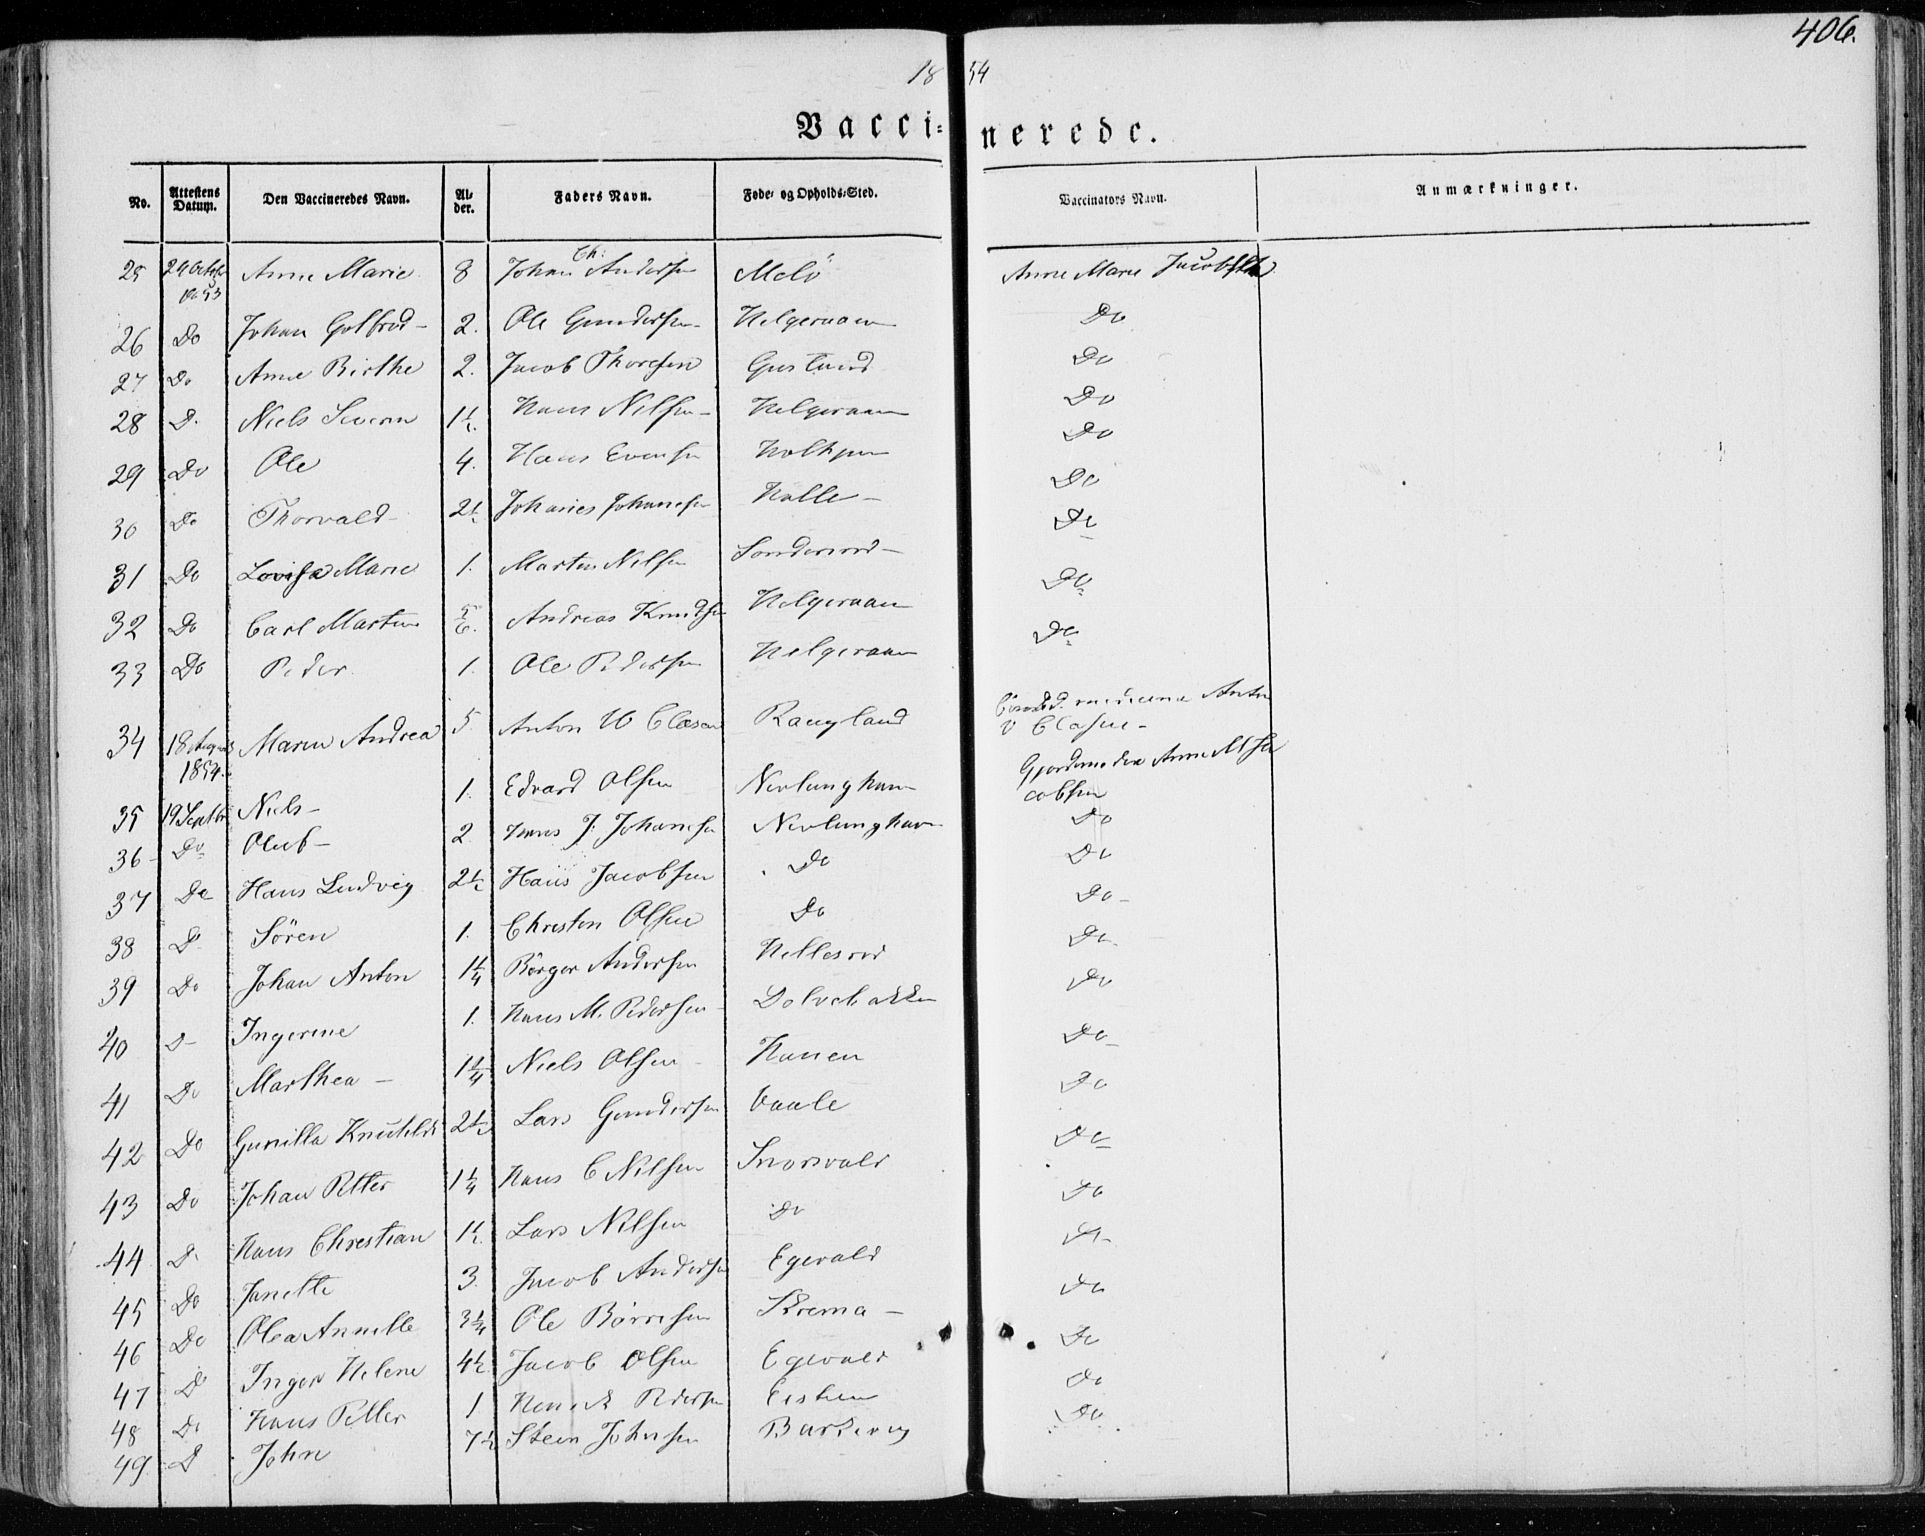 406.
1854
Vaccinerede.
No. Attestens Datum. Den Vaccineredes Navn. Alder. Faders Navn. Føde- og Opholds-Sted. Vaccinators Navn. Anmærkninger.
25 29 Octobr 1853 Anne Marie 8 Johan Ch: Andersen Melö Anne Marie Jacobsen
26 Do Johan Gotfred - 2. Ole Gundersen Helgeraaen Do
27 Do Anne Birthe 2. Jacob Thoresen Gusland Do
28 D. Niels Severin 1½. Hans Nilsen - Helgeraaen Do
29 Do Ole 4. Hans Evensen Do
30 Do Thorvald - 2½ Johanes Johanesen Halle - Do
31 Do Lovise Marie 1. Marten Nilsen Sonderrod - Do
32 Do Carl Martin 5/6. Andreas Knudsen Helgeraaen Do
33 Do Peder 1. Ole Pedersen Helgeraaen Do
34 18 August 1854. Maren Andrea 5. Anton W Clasen Raugland Anton
V Clasen -
35 19 Septbr Niels - 1. Edvard Olsen Nevlunghavn Gjordemoder Anne M Ja
cobsen
36 - Do Oluf - 2 Hans J. Johanesen Nevlunghavn Do
37 Do Hans Ludvig 2½ Hans Jacobsen Do Do
38 D Sören 1. Christen Olsen Do Do -
39 Do Johan Anton 1¼ Börger Andersen Do
40 D - Ingerine 1. Hans M. Pedersen Dolvebakken Do
41 Do Marthea - 1¼ Niels Olsen - Hauen Do
42 Do Gunilla 2½ Lars Gundersen Vaale Do
43 Do Johan Petter 1¼ Hans C Nilsen Do
44 D. Hans Christian 1½. Lars Nilsen Do Do
45 Do Janette 3. Jacob Andersen Egevald Do
46 Do Olea Annette 3¼ Ole Börresen Skrema - Do
47 D Inger Helene 4½ Jacob Olsen Egevald Do
48 Do Hans Petter 1 Henrik Pedersen Do
49 D John 7½ Steen Johnsen Barkevig Do